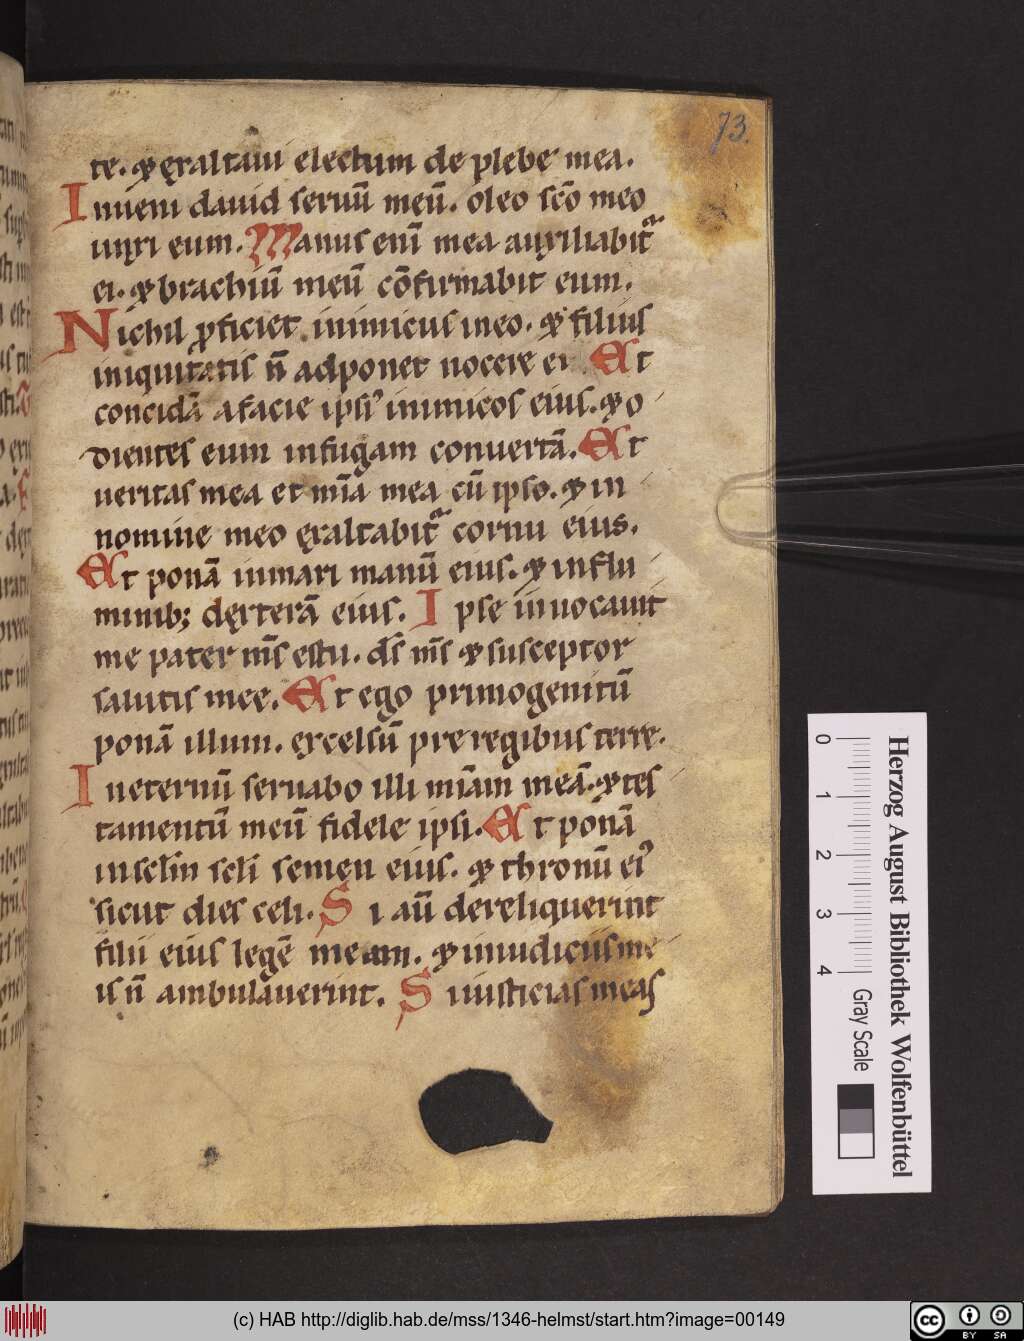 73.
te. & exaltaui electum de plebe mea.
Inueni dauid seruū meū. oleo scō meo
unxi eum. Manus enī mea auxiliabit᷑
ei. & brachiū meū cōfirmabit eum.
Nichil ꝓficiet inimicus in eo. & filius
iniquitatis n̄ adponet nocere ei. Et
concidā a facie ipsiꝰ inimicos eius. & o
dientes eum in fugam conuertā. Et
ueritas mea et mīa mea cū ipso. & in
nomine meo exaltabit᷑ cornu eius.
Et ponā in mari manū eius. & in flu
minib; dexterā eius. Ipse inuocauit
me pater m̄s es tu. d̄s m̄s & susceptor
salutis mee. Et ego primogenitū
ponā illum. excelsū pre regibus terre.
In eternū seruabo illi mīam meā. & tes
tamentū meū fidele ipsi. Et ponā
in sc̄lm sc̄li semen eius. & thronū eiꝰ
sicut dies celi. Si aū dereliquerint
filii eius legē meam. & in iudiciis me
is n̄ ambulauerint. Si iusticias meas
Herzog August Bibliothek Wolfenbüttel
0 1 2 3 4
Gray Scale
(c) HAB http://diglib.hab.de/mss/1346-helmst/start.htm?image=00149
cc BY SA